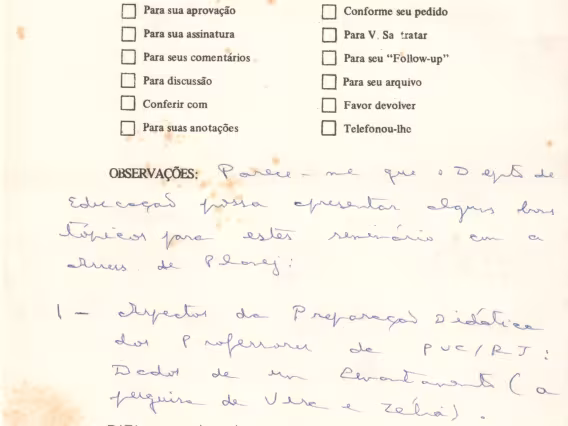 Para sua aprovação
Conforme seu pedido
Para sua assinatura
Para V. Sa tratar
Para seus comentários
Para seu "Follow-up"
Para discussão
Para seu arquivo
Conferir com
Favor devolver
Para suas anotações
Telefonou-lhe
OBSERVAÇÕES: Parece-me que o Depto de
Educação possa apresentar alguns bons
tópicos para este seminário em a
de Planej:
1 - Aspectos da Preparação Didática
dos Professores da PUC/RJ:
Dados de um Levantamento (a
pesquisa de Vera e Zélia).